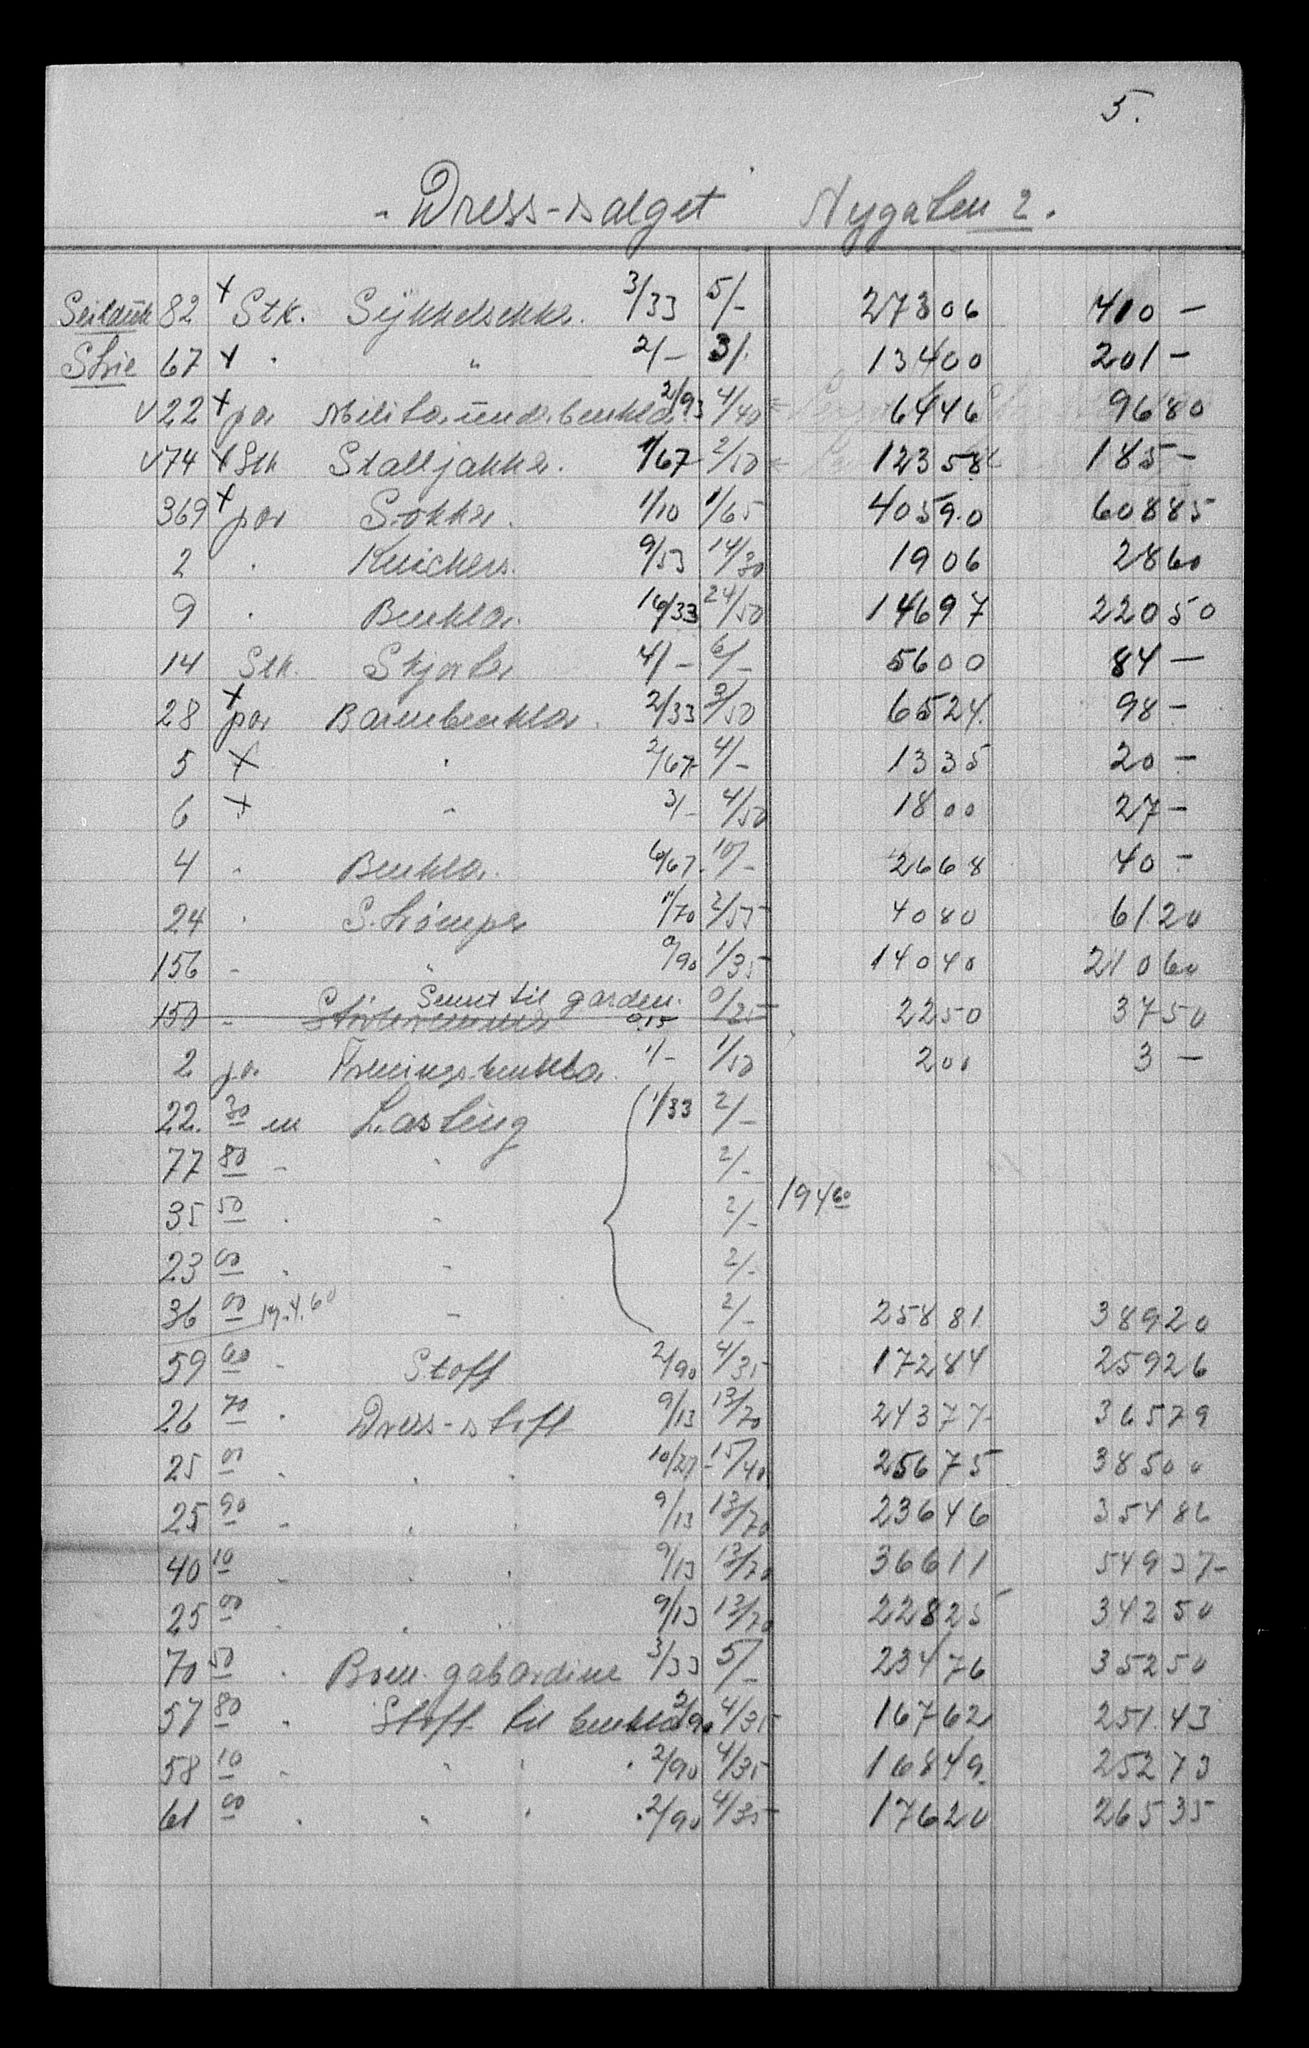 5.
Dress-salget Nygaten 2.
Seilduk 82 x Stk. Sykkelsekker. 3/33 5/- 273 06 410 -
Strie 67 x " " 2/- 3/- 134 00 201 -
v 22 x par Militærunderbenklær 2/93 4/40 64 46 96 80
v 74 x Stk Stalljakker. 1/67 2/50 123 58 185 -
369 x par Sokker. 1/10 1/65 405 90 608 85
2 " Knickers. 9/53 14/30 19 06 28 60
9 " Benklær. 16/33 24/50 146 97 220 50
14 Stk. Skjorter 4/- 6/- 56 00 84 -
28 x par Barnebenklær. 2/33 3/50 65 24 98 -
5 x " 2/67 4/- 13 35 20 -
6 x " 3/- 4/50 18 00 27 -
4 " Benklær. 6/67 10/- 26 68 40 -
24 " Strømper 1/70 2/55 40 80 61 20
156 " " 0/90 1/35 140 40 210 60
Sendt til garden.
150 " 0.15 0/25 22 50 37 50
2 pa. Treningsbenklær. 1/- 1/50 2 00 3 -
22.30 m Lasting 1/33 2/-
77 80 " " 2/-
35 50 " " 2/- 194 60
23 00 " " 2/-
36 00 194.60 " 2/- 258 81 389 20
59 60 " Stoff 2/90 4/35 172 84 259 26
26 70 " Dress-stoff 9/13 13/70 243 77 365 79
25 00 " " " 10/27 15/40 256 75 385 00
25 90 " " " 9/13 13/70 236 46 354 86
40 10 " " " 9/13 13/70 366 11 549 37
25 00 " " " 9/13 13/70 228 25 342 50
70 50 " Bom. gabardine 3/33 5/- 234 76 352 50
57 80 " Stoff til benklær 2/90 4/35 167 62 251.43
58 10 " " " " 2/90 4/35 168 49 252 73
61 00 " " " " 2/90 4/35 176 20 265 35